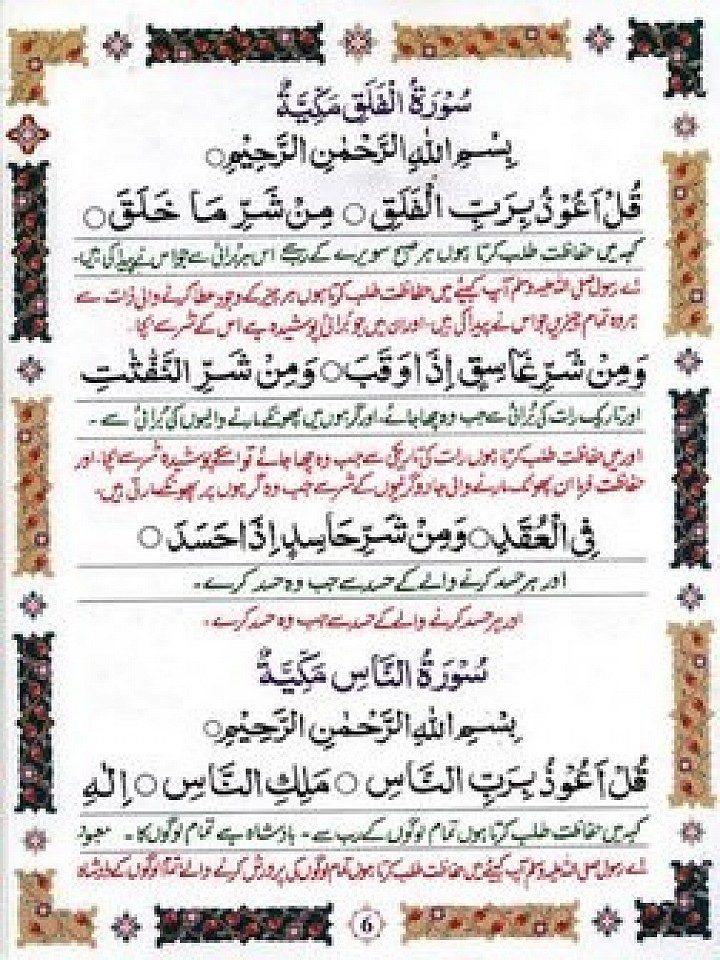 سُوْرَةُ الْفَلَقِ مَكِّيَّةٌ
بِسْمِ اللهِ الرَّحْمٰنِ الرَّحِيْمِ○
قُلْ اَعُوْذُ بِرَبِّ الْفَلَقِ○ مِنْ شَرِّ مَا خَلَقَ○
کہہ میں حفاظت طلب کرتا ہوں ہر صبح سویرے کے رب سے اس ہر برائی سے جو اس نے پیدا کی ہیں۔
اے رسول صلی اللہ علیہ وسلم آپ کہیئے میں حفاظت طلب کرتا ہوں ہر چیز کے وجود عطا کرنے والی ذات سے
ہر وہ تمام چیزیں جو اس نے پیدا کی ہیں۔ اور ان میں جو برائی پوشیدہ ہے اس کے شر سے بچا۔
وَمِنْ شَرِّ غَاسِقٍ اِذَا وَقَبَ○ وَمِنْ شَرِّ النَّفّٰثٰتِ
اور تاریک رات کی برائی سے جب وہ چھا جائے۔ اور گرہوں میں پھونکے مارنے والیوں کی برائی سے۔
اور میں حفاظت طلب کرتا ہوں رات کی تاریکی سے جب وہ چھا جائے تو اسکے پوشیدہ شر سے بچا۔ اور
حفاظت فرما ان پھونک مارنے والی جادوگرنیوں کے شر سے جب وہ گرہوں پر پھونکے مارتی ہیں۔
فِی الْعُقَدِ○ وَمِنْ شَرِّ حَاسِدٍ اِذَا حَسَدَ○
اور ہر حسد کرنے والے کے حسد سے جب وہ حسد کرے۔
اور ہر حسد کرنے والے کے حسد سے جب وہ حسد کرے۔
سُوْرَةُ النَّاسِ مَكِّيَّةٌ
بِسْمِ اللهِ الرَّحْمٰنِ الرَّحِيْمِ○
قُلْ اَعُوْذُ بِرَبِّ النَّاسِ○ مَلِكِ النَّاسِ○ اِلٰهِ
کہہ میں حفاظت طلب کرتا ہوں تمام لوگوں کے رب سے۔ بادشاہ ہے تمام لوگوں کا۔ معبود
اے رسول صلی اللہ علیہ وسلم آپ کہیئے میں حفاظت طلب کرتا ہوں تمام لوگوں کی پرورش کرنے والے تمام لوگوں کے بادشاہ
6